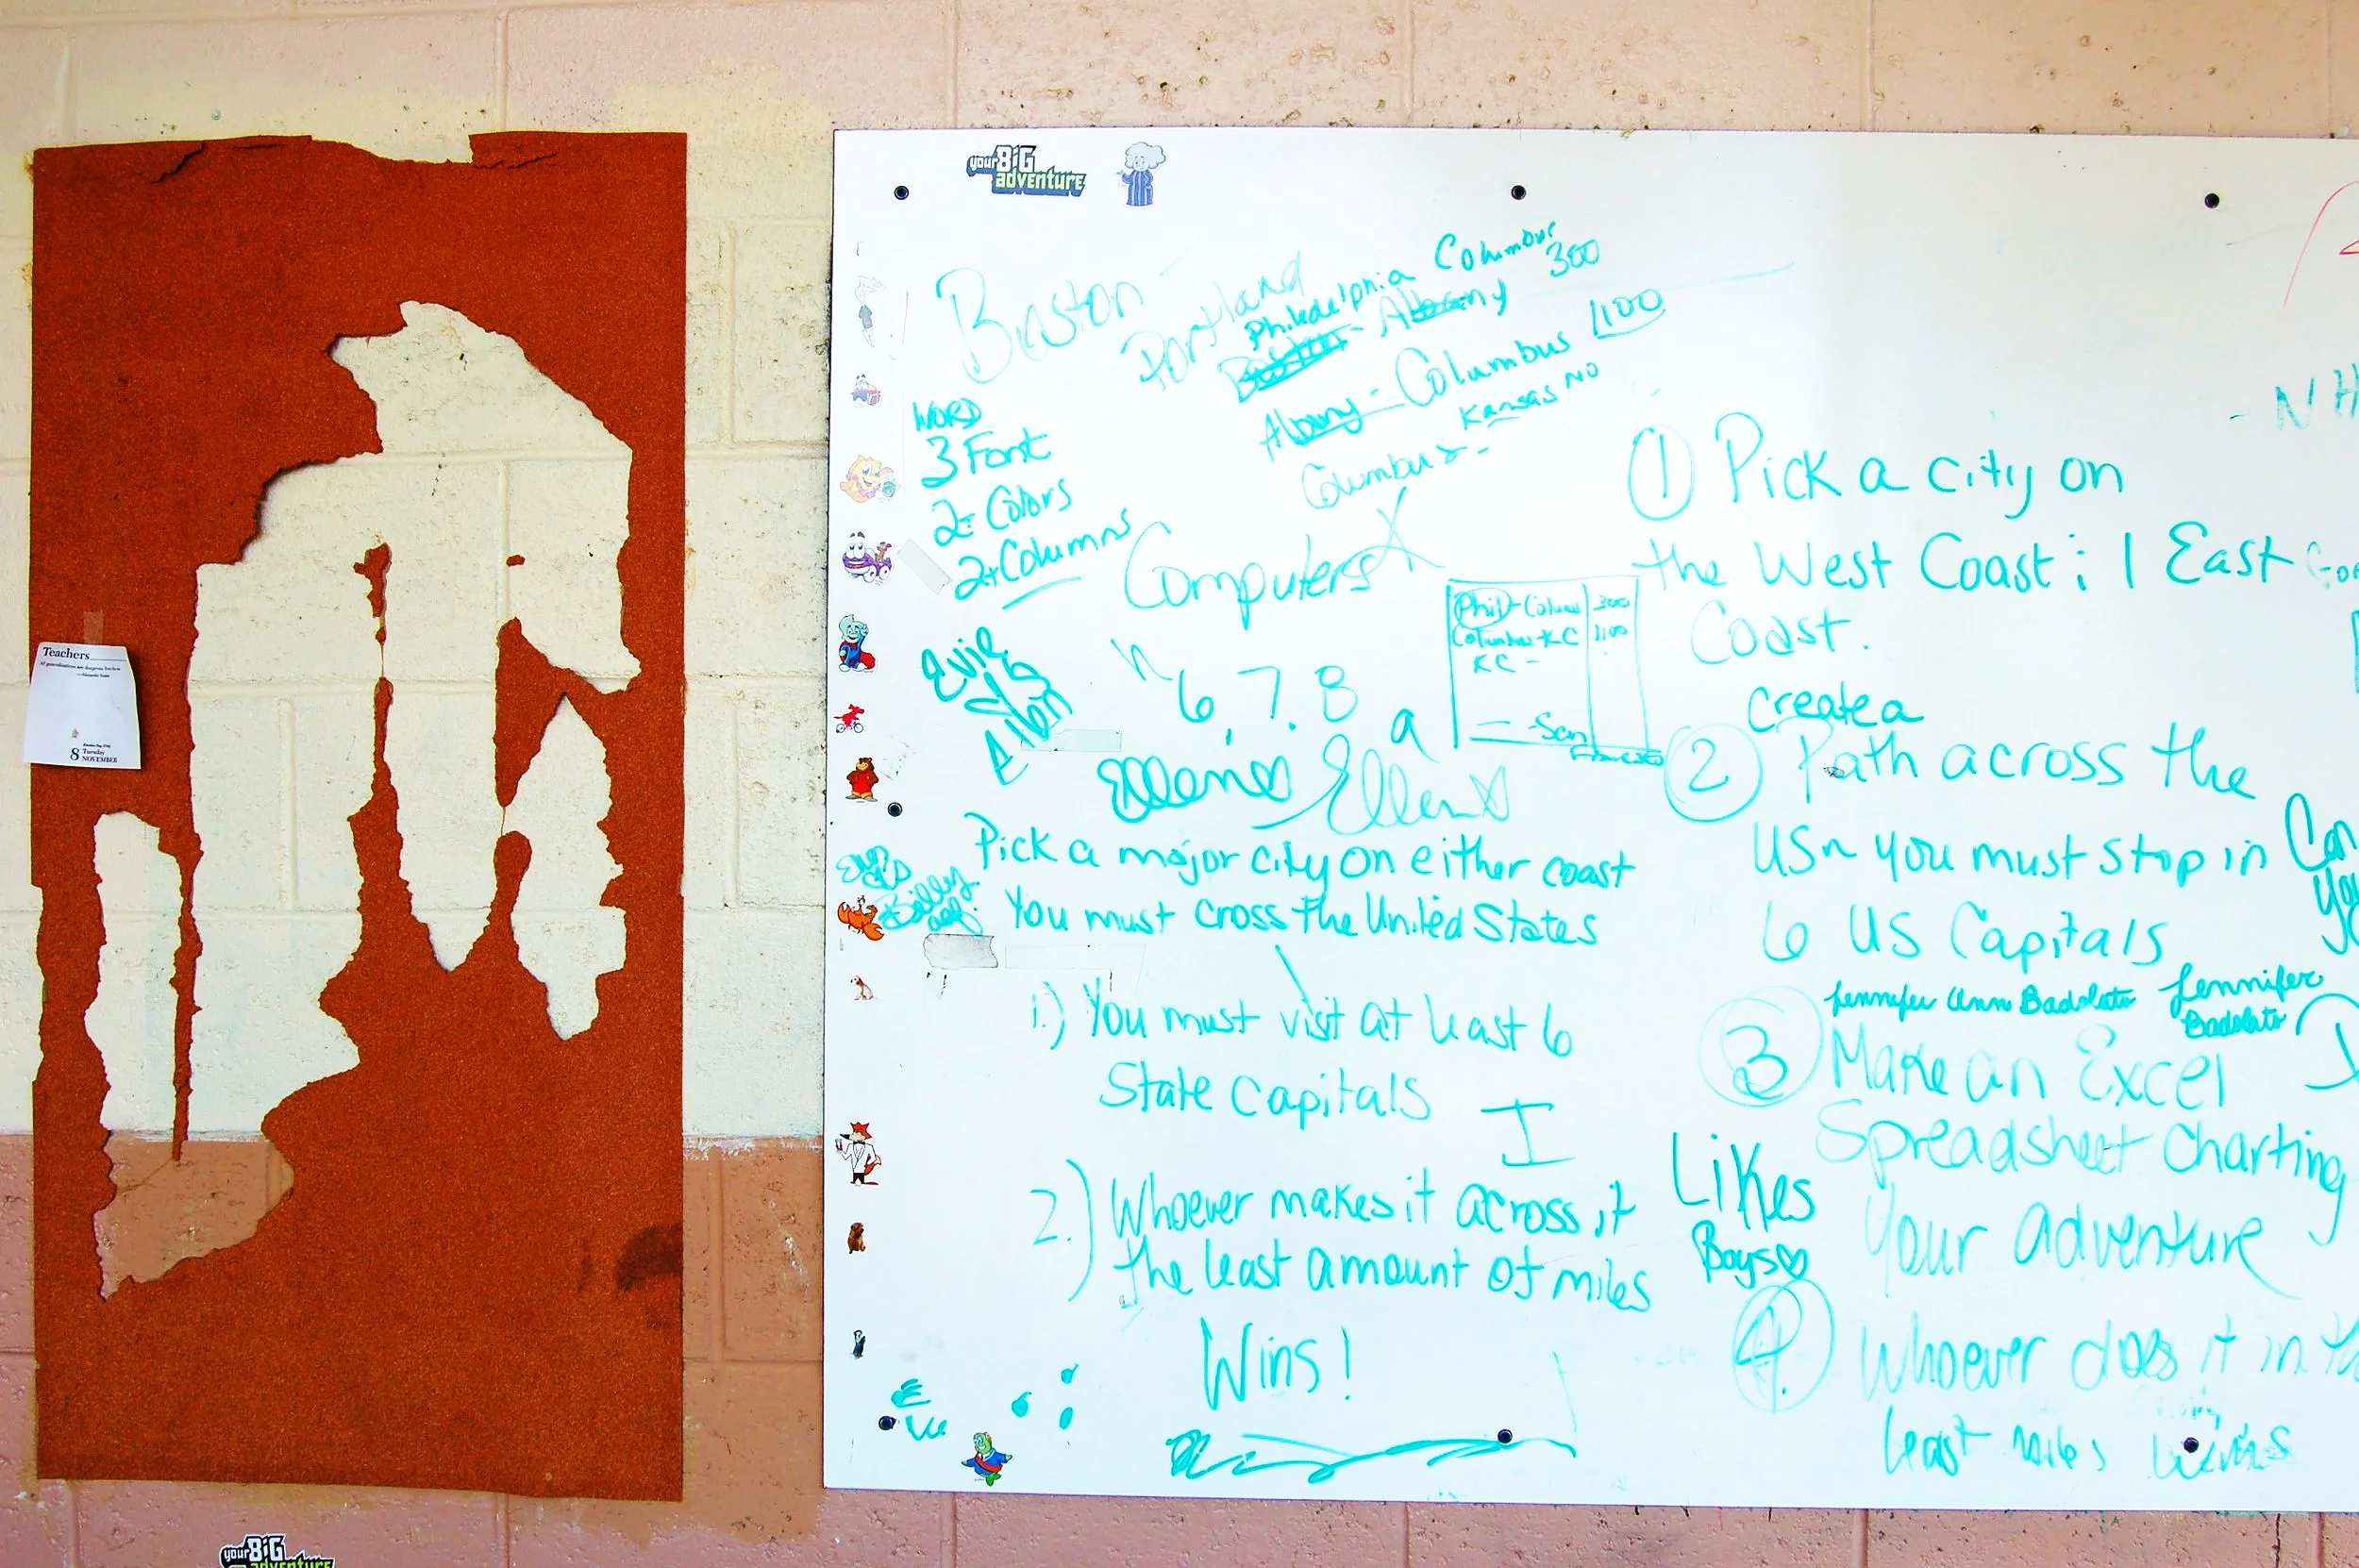 Teachers
All generalizations are dangerous, but true.
8 Tuesday
NOVEMBER
your BIG
adventure
Boston
Portland
Philadelphia Columbus
300
Boston - Albany
Albany - Columbus 1100
Kansas NO
Columbus -
WORD
3 Font
2+ Colors
2+ Columns
Computers
6, 7, 8
a
Phil - Colum 300
Columbus - KC 1100
KC -
San
Francisco
Evie
Ellen
Ellen
Pick a major city on either coast
You must cross the United States
1.) You must visit at least 6
State Capitals
I
2.) Whoever makes it across it
the least amount of miles
Wins!
- NH
1 Pick a city on
the West Coast : 1 East
Coast.
create a
2 Path across the
USA you must stop in
6 US Capitals
Jennifer Ann Badolato
Jennifer
Badolato
3 Make an Excel
Spreadsheet charting
Your adventure
Likes
Boys
4. Whoever does it in
least miles wins
your BIG
adventure